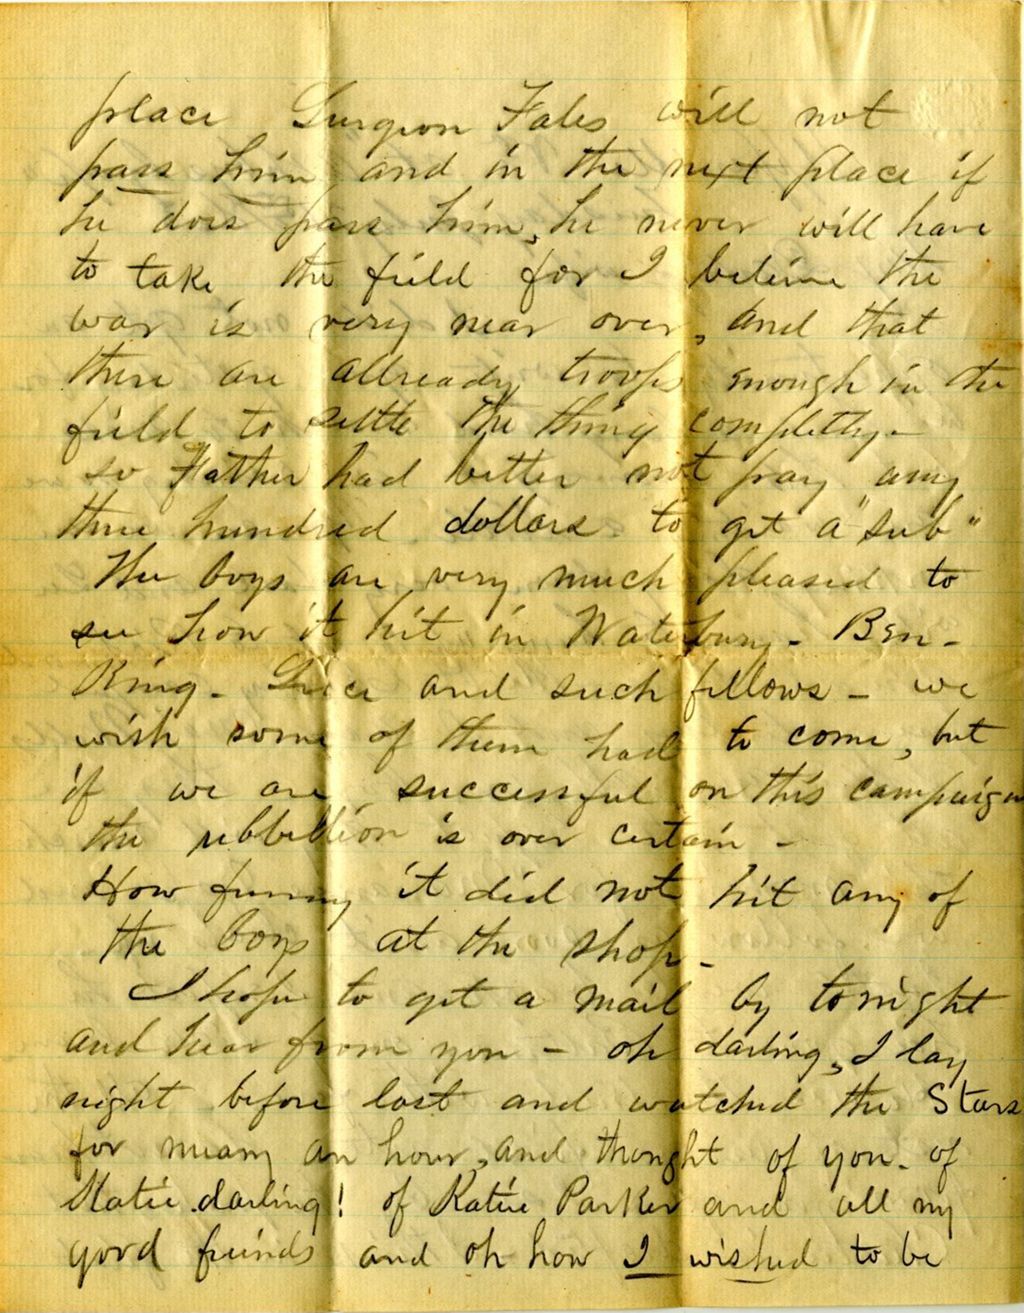 place Surgeon Fales will not
pass him and in the next place if
he does pass him, he never will have
to take the field for I believe the
war is very near over, and that
there are allready troops enough in the
field to settle the thing completly -
so Father had better not pay any
three hundred dollars to get a "sub"
The boys are very much pleased to
see how it hit in Waterbury - Ben -
King - and such fellows - we
wish some of them had to come, but
if we are successful on this campaign
the rebbellion is over certain -
How funny it did not hit any of
the boys at the shop -
I hope to get a mail by tonight
and hear from you - oh darling, I lay
night before last and watched the Stars
for many an hour, and thought of you - of
Katie darling! of Katie Parker and all my
good friends and oh how I wished to be